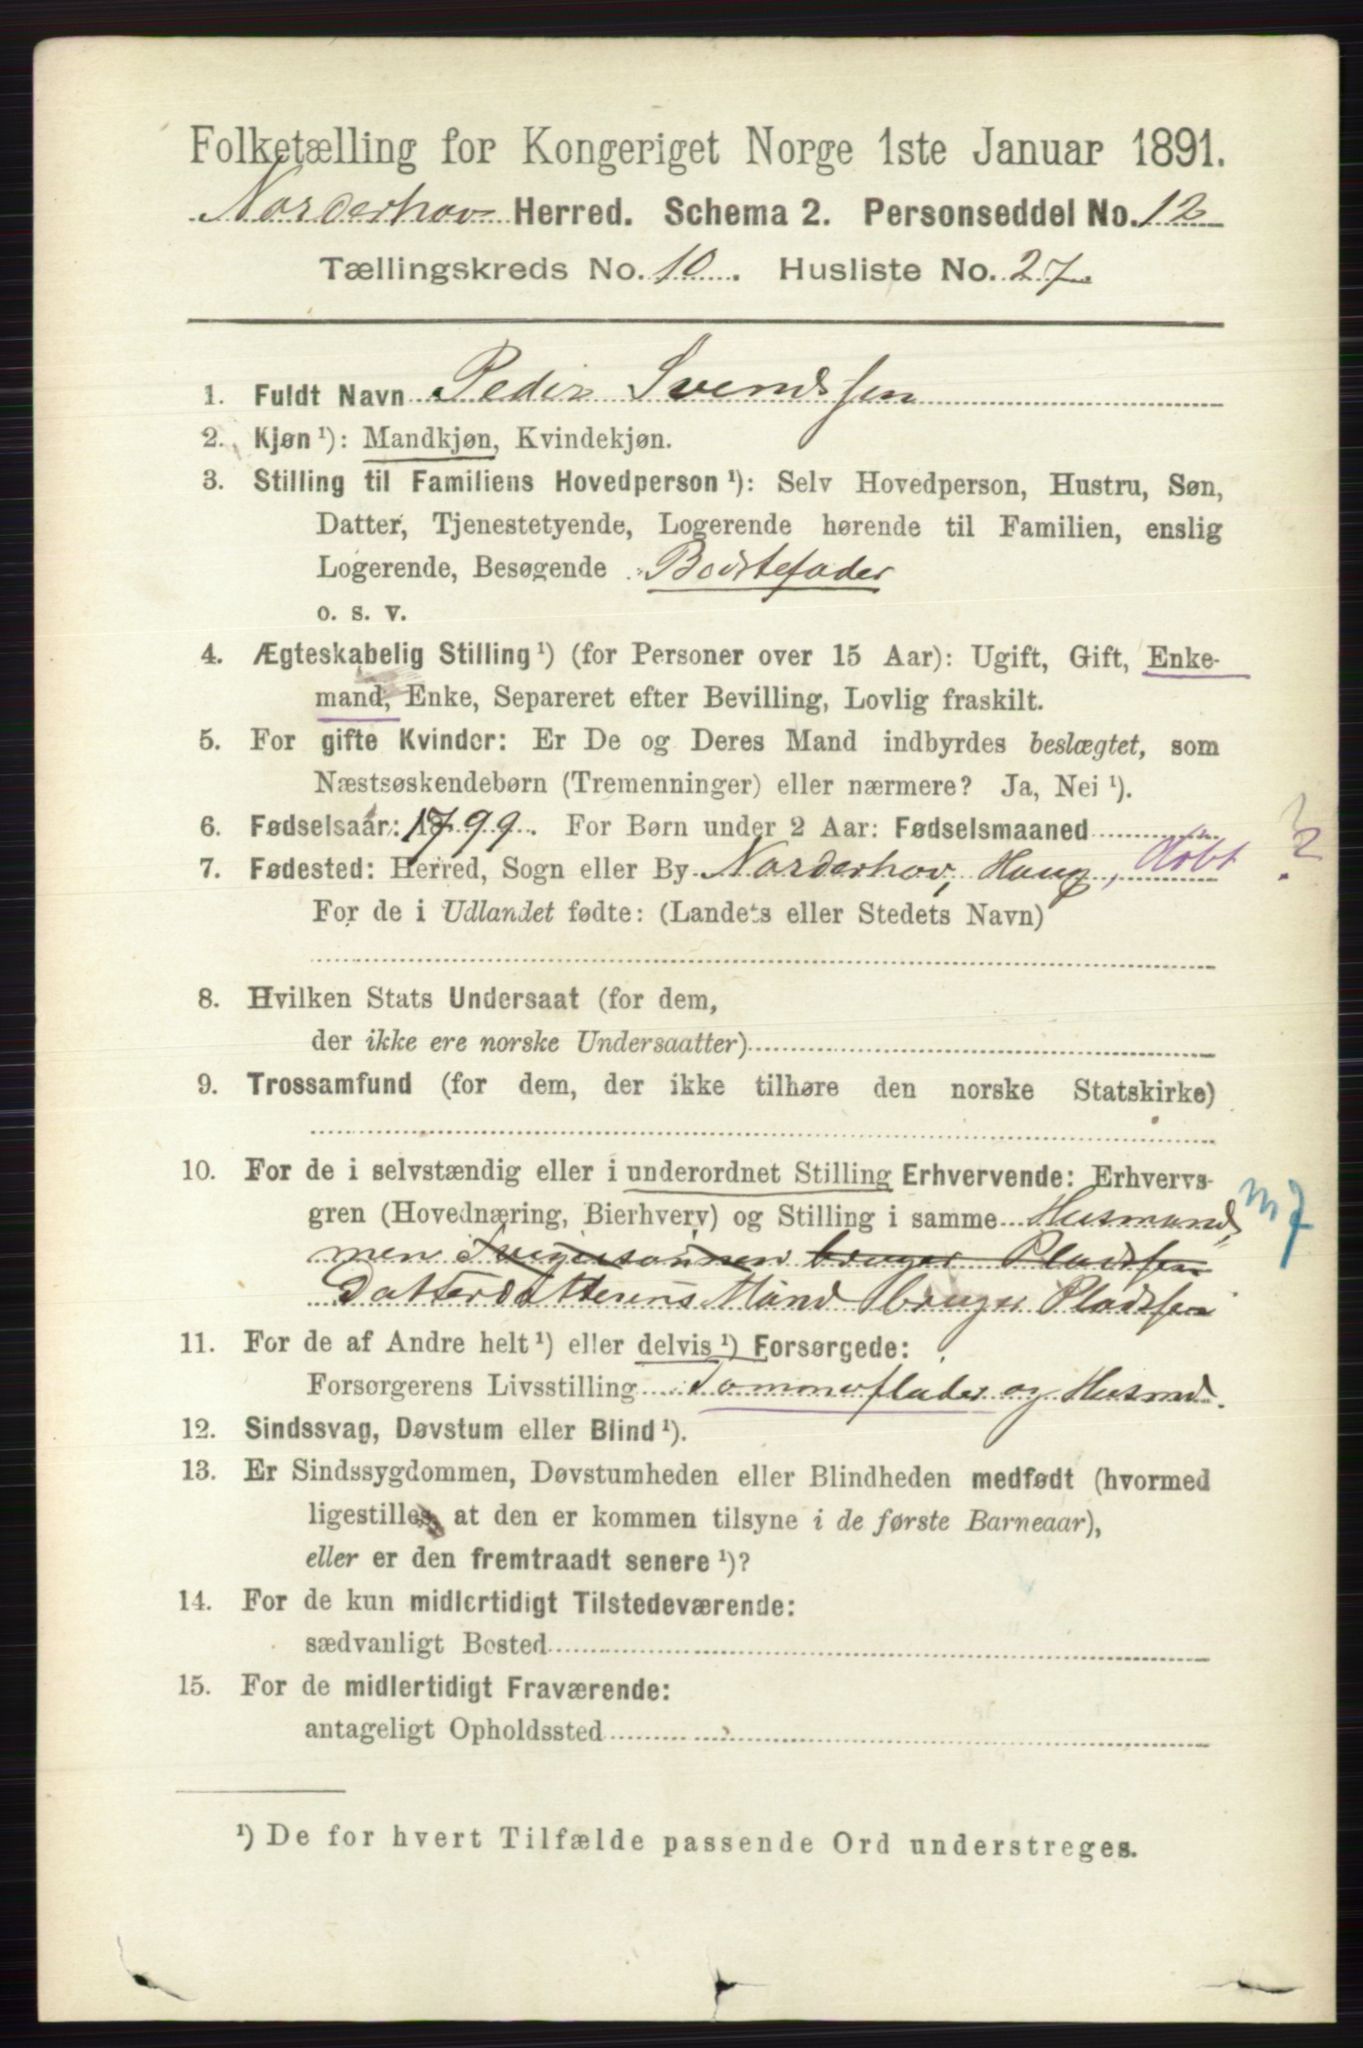 Folketælling for Kongeriget Norge 1ste Januar 1891.
Norderhov Herred. Schema 2. Personseddel No. 12
Tællingskreds No. 10. Husliste No. 27.
1. Fuldt Navn Peder Svendsen
2. Kjøn ¹): Mandkjøn, Kvindekjøn.
3. Stilling til Familiens Hovedperson ¹): Selv Hovedperson, Hustru, Søn,
Datter, Tjenestetyende, Logerende hørende til Familien, enslig
Logerende, Besøgende Bedstefader
o. s. v.
4. Ægteskabelig Stilling ¹) (for Personer over 15 Aar): Ugift, Gift, Enke-
mand, Enke, Separeret efter Bevilling, Lovlig fraskilt.
5. For gifte Kvinder: Er De og Deres Mand indbyrdes beslægtet, som
Næstsøskendebørn (Tremenninger) eller nærmere? Ja, Nei ¹).
6. Fødselsaar: 1799. For Børn under 2 Aar: Fødselsmaaned
7. Fødested: Herred, Sogn eller By Norderhov, Haug, ?
For de i Udlandet fødte: (Landets eller Stedets Navn)
8. Hvilken Stats Undersaat (for dem,
der ikke ere norske Undersaatter)
9. Trossamfund (for dem, der ikke tilhøre den norske Statskirke)
10. For de i selvstændig eller i underordnet Stilling Erhvervende: Erhvervs-
gren (Hovednæring, Bierhverv) og Stilling i samme Husmand, m7
men Svigersønnen bruger Pladsen
Datterdatterens Mand bruger Pladsen
11. For de af Andre helt ¹) eller delvis ¹) Forsørgede:
Forsørgerens Livsstilling Tømmerfløder og Husmd.
12. Sindssvag, Døvstum eller Blind ¹).
13. Er Sindssygdommen, Døvstumheden eller Blindheden medfødt (hvormed
ligestilles, at den er kommen tilsyne i de første Barneaar),
eller er den fremtraadt senere ¹)?
14. For de kun midlertidigt Tilstedeværende:
sædvanligt Bosted
15. For de midlertidigt Fraværende:
antageligt Opholdssted
¹) De for hvert Tilfælde passende Ord understreges.